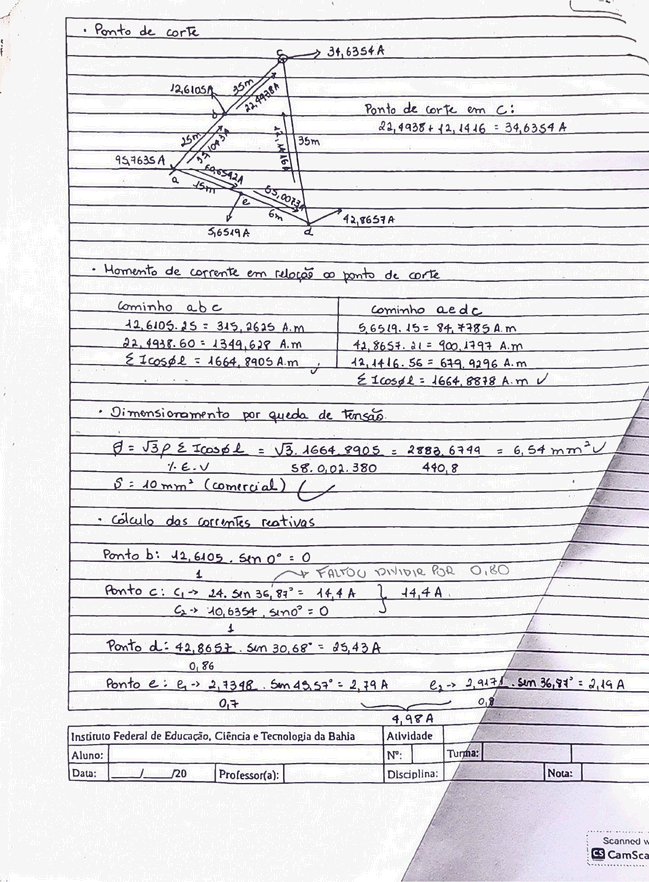 • Ponto de corte
c → 34,6354 A
12,6105 A
35m
22,4938A
b
Ponto de corte em C:
22,4938 + 12,1416 = 34,6354 A
25m
12,1416A
35m
95,7635A
a
60,6592A
15m
e
55,0073A
6m
5,6519A
d
42,8657A
• Momento de corrente em relação ao ponto de corte
Caminho a b c
12,6105 . 25 = 315,2625 A.m
22,4938 . 60 = 1349,628 A.m
Σ Icosφℓ = 1664,8905 A.m ✓
Caminho a e d c
5,6519 . 15 = 84,7785 A.m
42,8657 . 21 = 900,1797 A.m
12,1416 . 56 = 679,9296 A.m
Σ Icosφℓ = 1664,8878 A.m ✓
• Dimensionamento por queda de tensão
S = √3 ρ Σ Icosφℓ = √3 . 1664,8905 = 2883,6749 = 6,54 mm² ✓
%.E.V 58.0,02.380 440,8
S = 10 mm² (comercial) ✓
• Cálculo das correntes reativas
Ponto b: 12,6105 . sen 0° = 0
1
→ FALTOU DIVIDIR POR 0,80
Ponto c: C₁ → 24. sen 36,87° = 14,4 A } 14,4 A.
C₂ → 10,6354 . sen 0° = 0
1
Ponto d: 42,8657 . sen 30,68° = 25,43 A
0,86
Ponto e: e₁ → 2,7348 . sen 45,57° = 2,79 A e₂ → 2,9171 . sen 36,87° = 2,19 A
0,7 0,8
4,98 A
Instituto Federal de Educação, Ciência e Tecnologia da Bahia Atividade
Aluno: Nº: Turma:
Data: ____/____/20 Professor(a): Disciplina: Nota:
Scanned w
CS CamSca